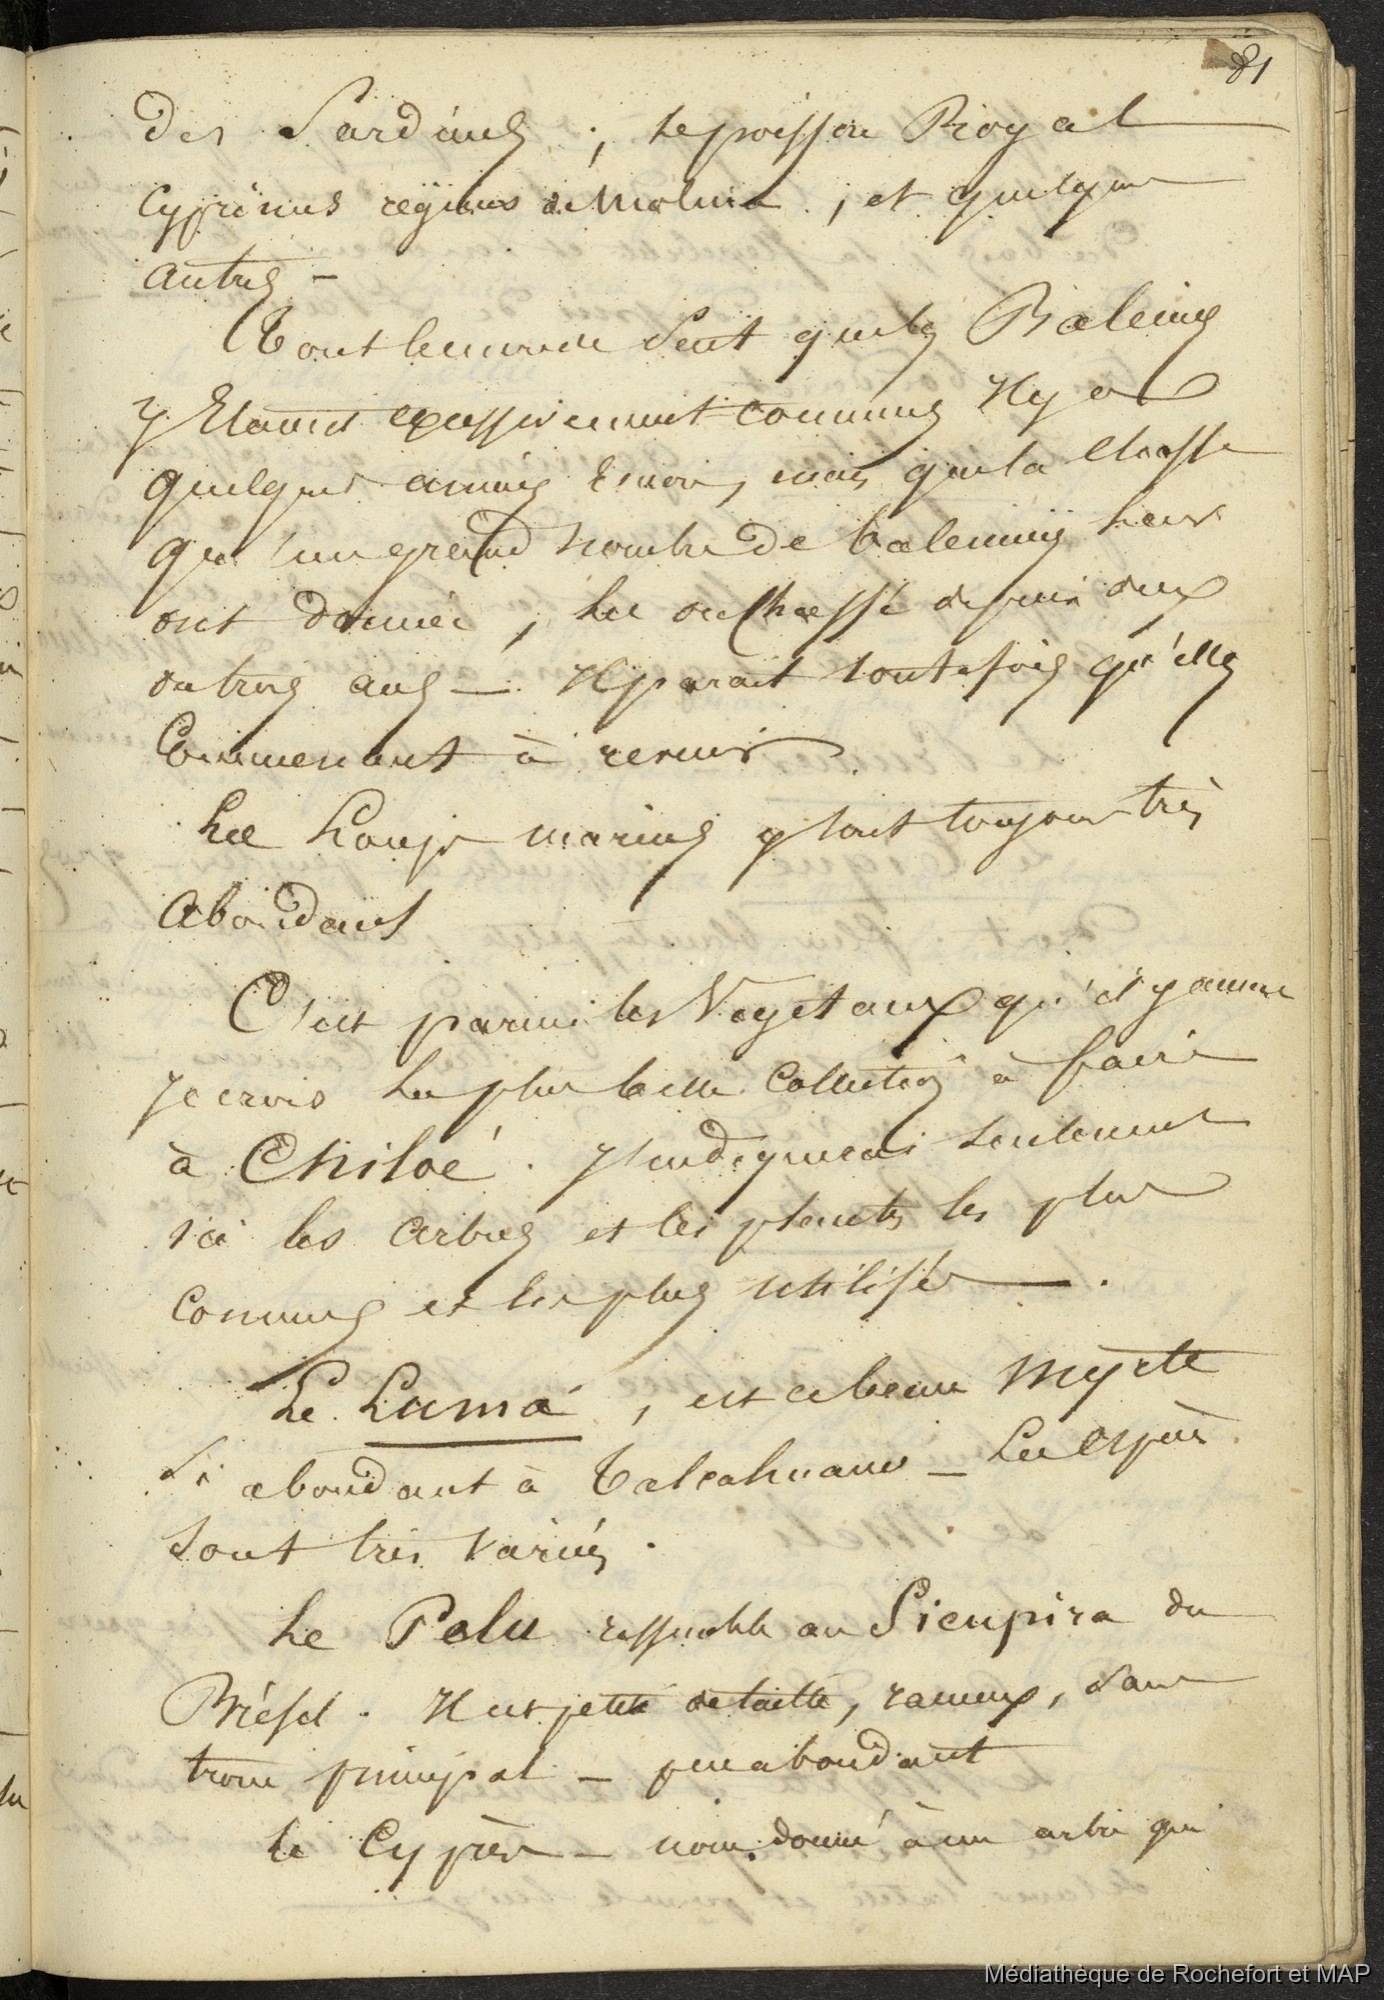 81
Des Sardines ; le poisson Royal
Cyprinus regius de Molina ; et quelques
autres –
Tout le monde sent que les Baleines
y Etaient excessivement communes Il y a
quelques années encore, mais que la chasse
qu'un grand nombre de baleiniers leur
ont donnée, les ont chassé depuis deux
ou trois ans –. Il parait toutefois qu'elles
Commencent à revenir
Les Loups marins y sont toujours très
abondans
C'est parmi les Vegetaux qu'il y aura
Je crois la plus belle Collection à faire
à Chiloé. J'indiquerai seulement
ici les arbres et les plantes les plus
communs et les plus utilisés –.
Le Luma, est ce beau Myrte
Si abondant à Talcahuano – Les espèces
sont très variées.
Le Pelu ressemble au Sicupira du
Brésil. Il est petit de taille, rameux, sans
tronc principal – peu abondant
le Cyprès – nom donné à un arbre qui
Médiathèque de Rochefort et MAP